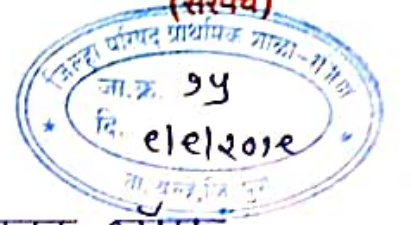 (सरपंच)
जिल्हा परिषद प्राथमिक शाळा-
जा.क्र. १५
दि. ९/९/२०१९
ता. जि. पुणे